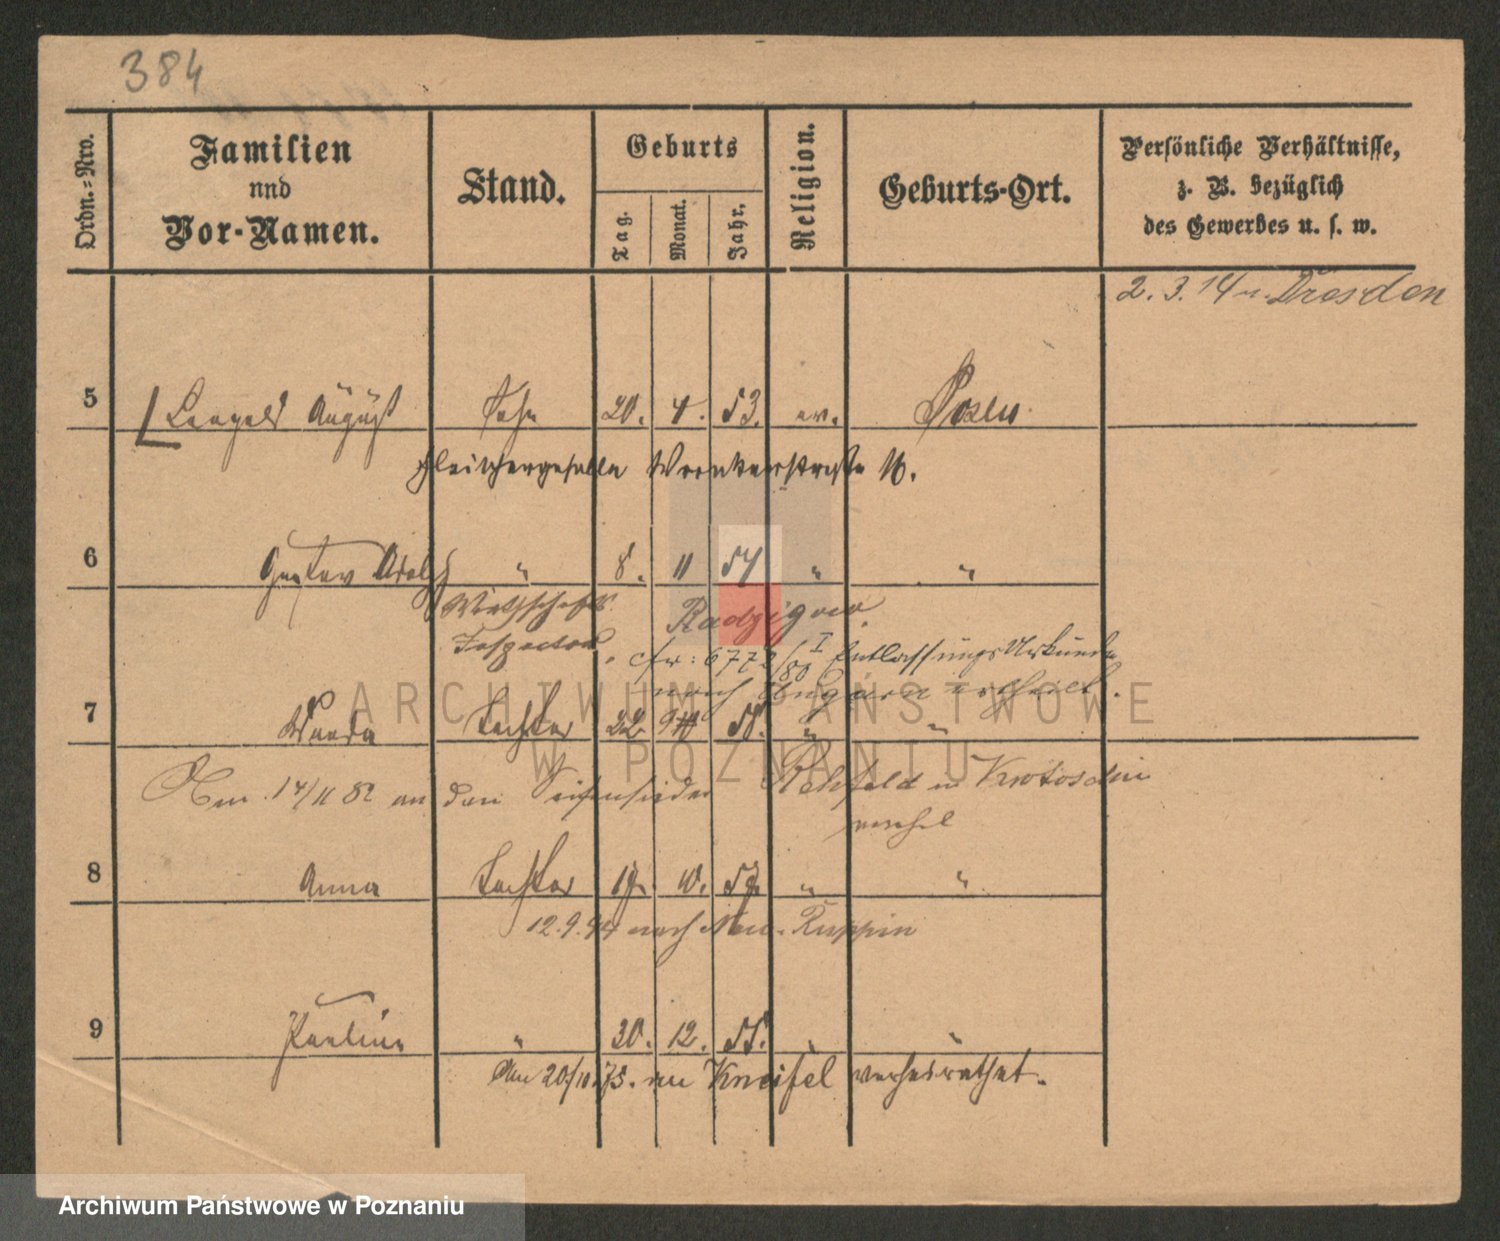 384
Ordn.=Nro.
Familien
und
Vor-Namen.
Stand.
Geburts
Tag.
Monat.
Jahr.
Religion.
Geburts-Ort.
Persönliche Verhältnisse,
z. B. bezüglich
des Gewerbes u. s. w.
2. 3. 14 n. Dresden
5 Leopold August Sohn 20. 4. 53. ev. Posen
Fleischergeselle Wronkerstraße 16.
6 Gustav Adolph " 8. 11 54 " "
Wirthschafts
Inspector
Radzigowo
cfr: 6772/80 I Entlassungs Urkunde
nach Ungarn ertheilt.
7 Wanda Tochter 22 9 58. " "
Am 14/11 82 an den Seifensieder Rehfeld in Krotoschin
verehel
8 Anna Tochter 19. 10. 57. " "
12. 9. 94 nach Neu-Ruppin
9 Pauline " 30. 12. 55. " "
Am 20/10 75. an Kneifel verheirathet.
ARCHIWUM PAŃSTWOWE
W POZNANIU
Archiwum Państwowe w Poznaniu